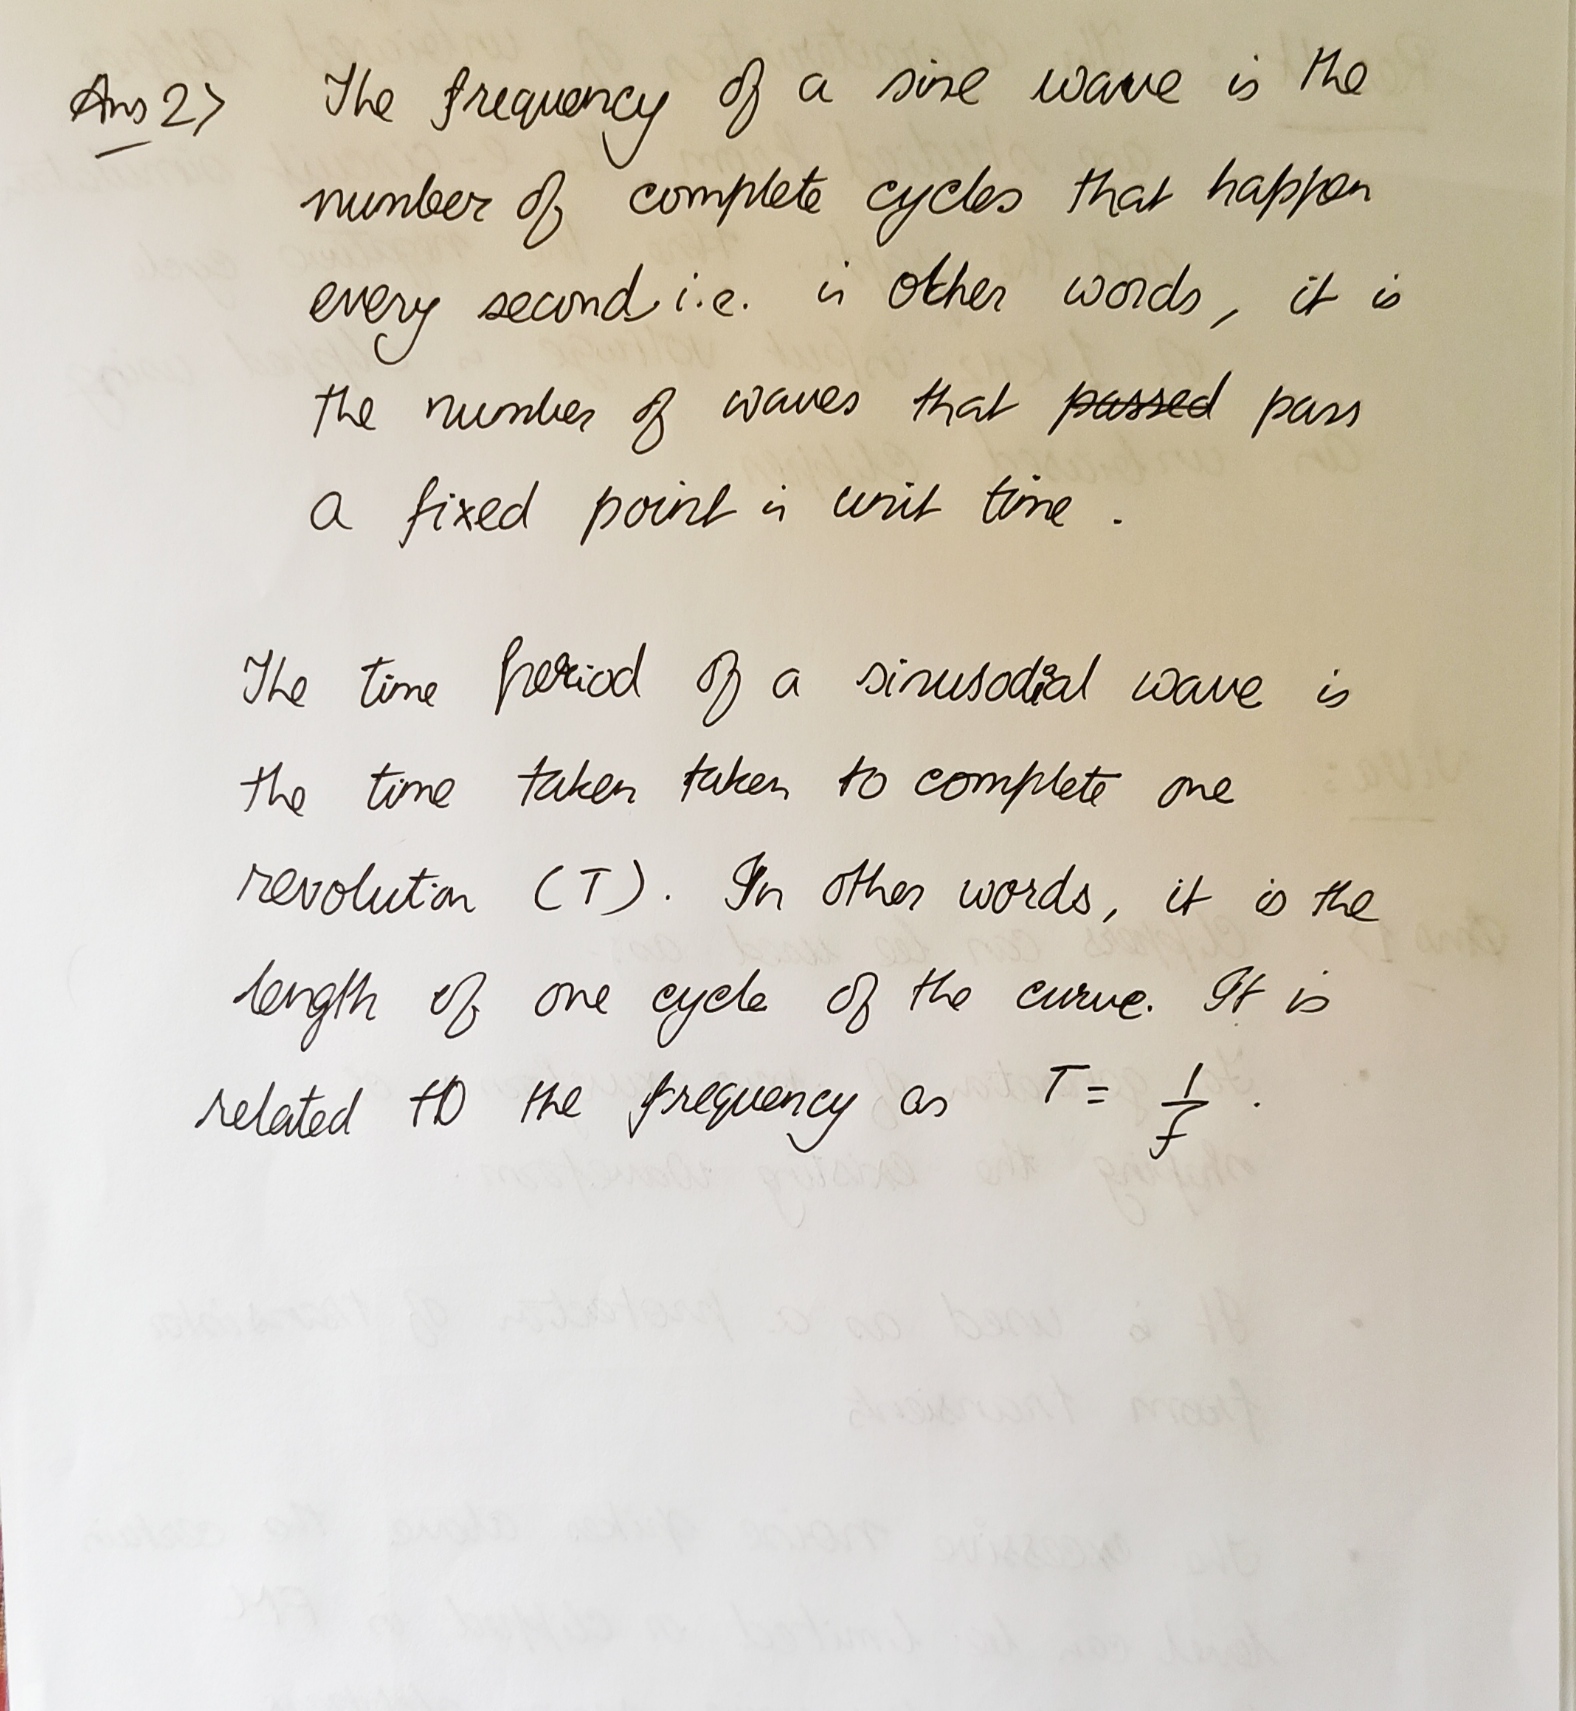 Ans 2> The frequency of a sine wave is the
number of complete cycles that happen
every second i.e. in other words, it is
the number of waves that passed pass
a fixed point in unit time.
The time period of a sinusodial wave is
the time taken taken to complete one
revolution (T). In other words, it is the
length of one cycle of the curve. It is
related to the frequency as T = 1/f.